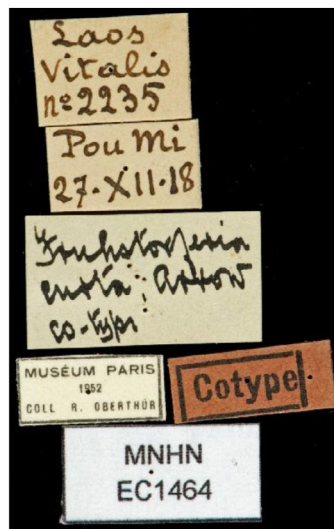 Laos
Vitalis
nº2235
Pou Mi
27.XII.18
Fruhstorferia
curta; Arrow
co-type
MUSÉUM PARIS
1952
COLL R. OBERTHÜR
Cotype
MNHN
EC1464